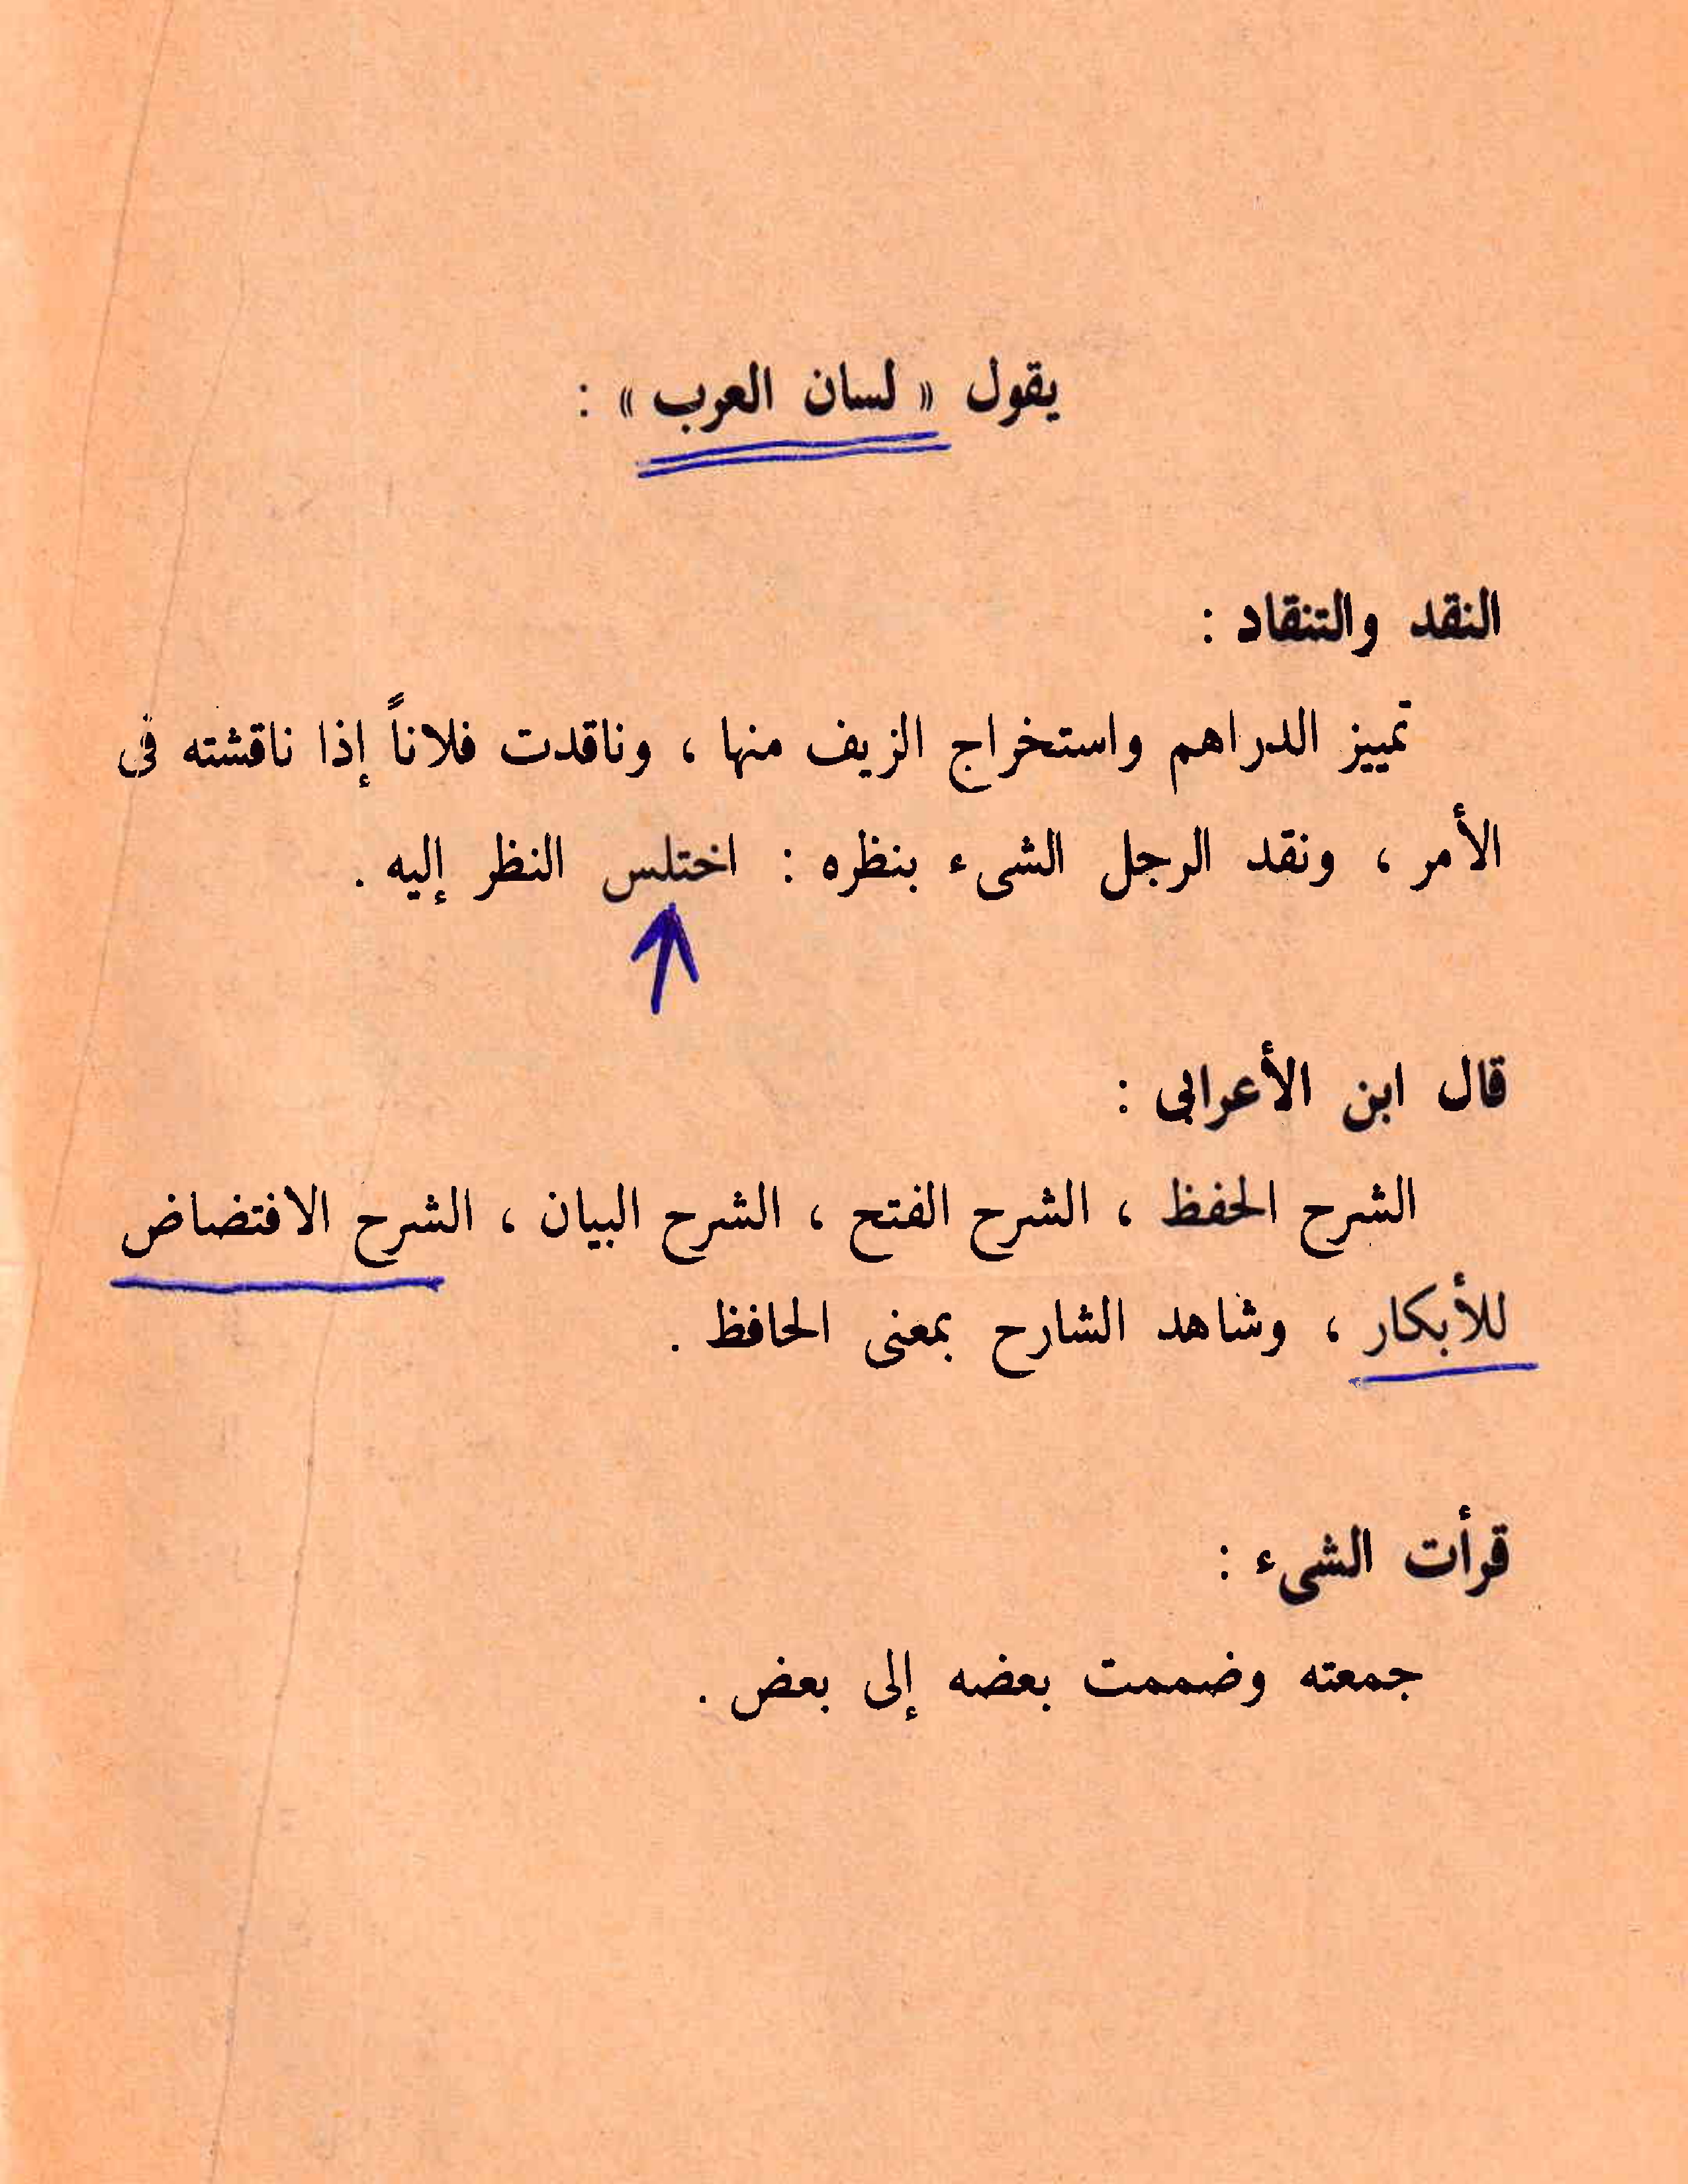 يقول « لسان العرب » :
النقد والتنقاد :
تمييز الدراهم واستخراج الزيف منها ، وناقدت فلاناً إذا ناقشته فى
الأمر ، ونقد الرجل الشىء بنظره : اختلس النظر إليه .
قال ابن الأعرابى :
الشرح الحفظ ، الشرح الفتح ، الشرح البيان ، الشرح الافتضاض
للأبكار ، وشاهد الشارح بمعنى الحافظ .
قرأت الشىء :
جمعته وضممت بعضه إلى بعض .